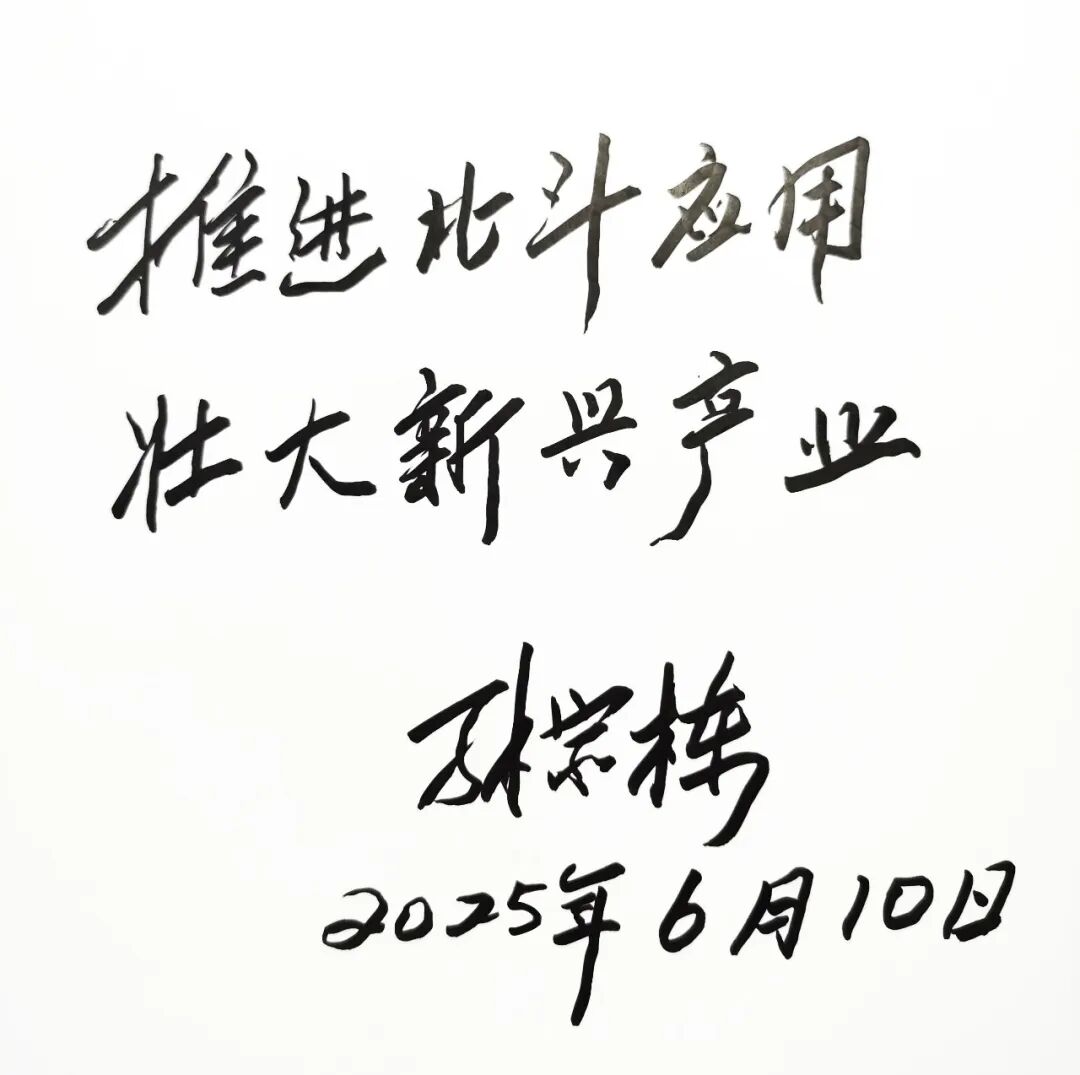 推进北斗应用
壮大新兴产业
张宗栋
2025年6月10日